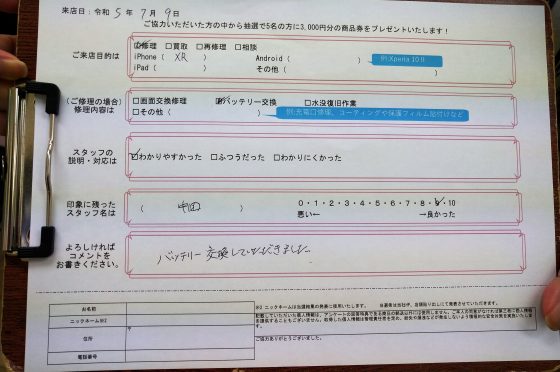 来店日：令和 5年 7月 9日
ご協力いただいた方の中から抽選で5名の方に3,000円分の商品券をプレゼントいたします！
ご来店目的は
☑修理 □買取 □再修理 □相談
iPhone（ XR ） Android（ ） 例:Xperia 10Ⅱ
iPad（ ） その他（ ）
（ご修理の場合）
修理内容は
□画面交換修理 ☑バッテリー交換 □水没復旧作業
□その他（ 例:充電口修理、コーティングや保護フィルム貼付けなど
スタッフの
説明・対応は
☑わかりやすかった □ふつうだった □わかりにくかった
印象に残った
スタッフ名は
（ 中田 ）
0・1・2・3・4・5・6・7・8・9・10
悪い← →良かった
よろしければ
コメントを
お書きください。
バッテリー交換していただきました
お名前
ニックネーム※2
住所
〒
電話番号
※2 ニックネームは当選結果の発表に使用いたします。
ご協力ありがとうございました。